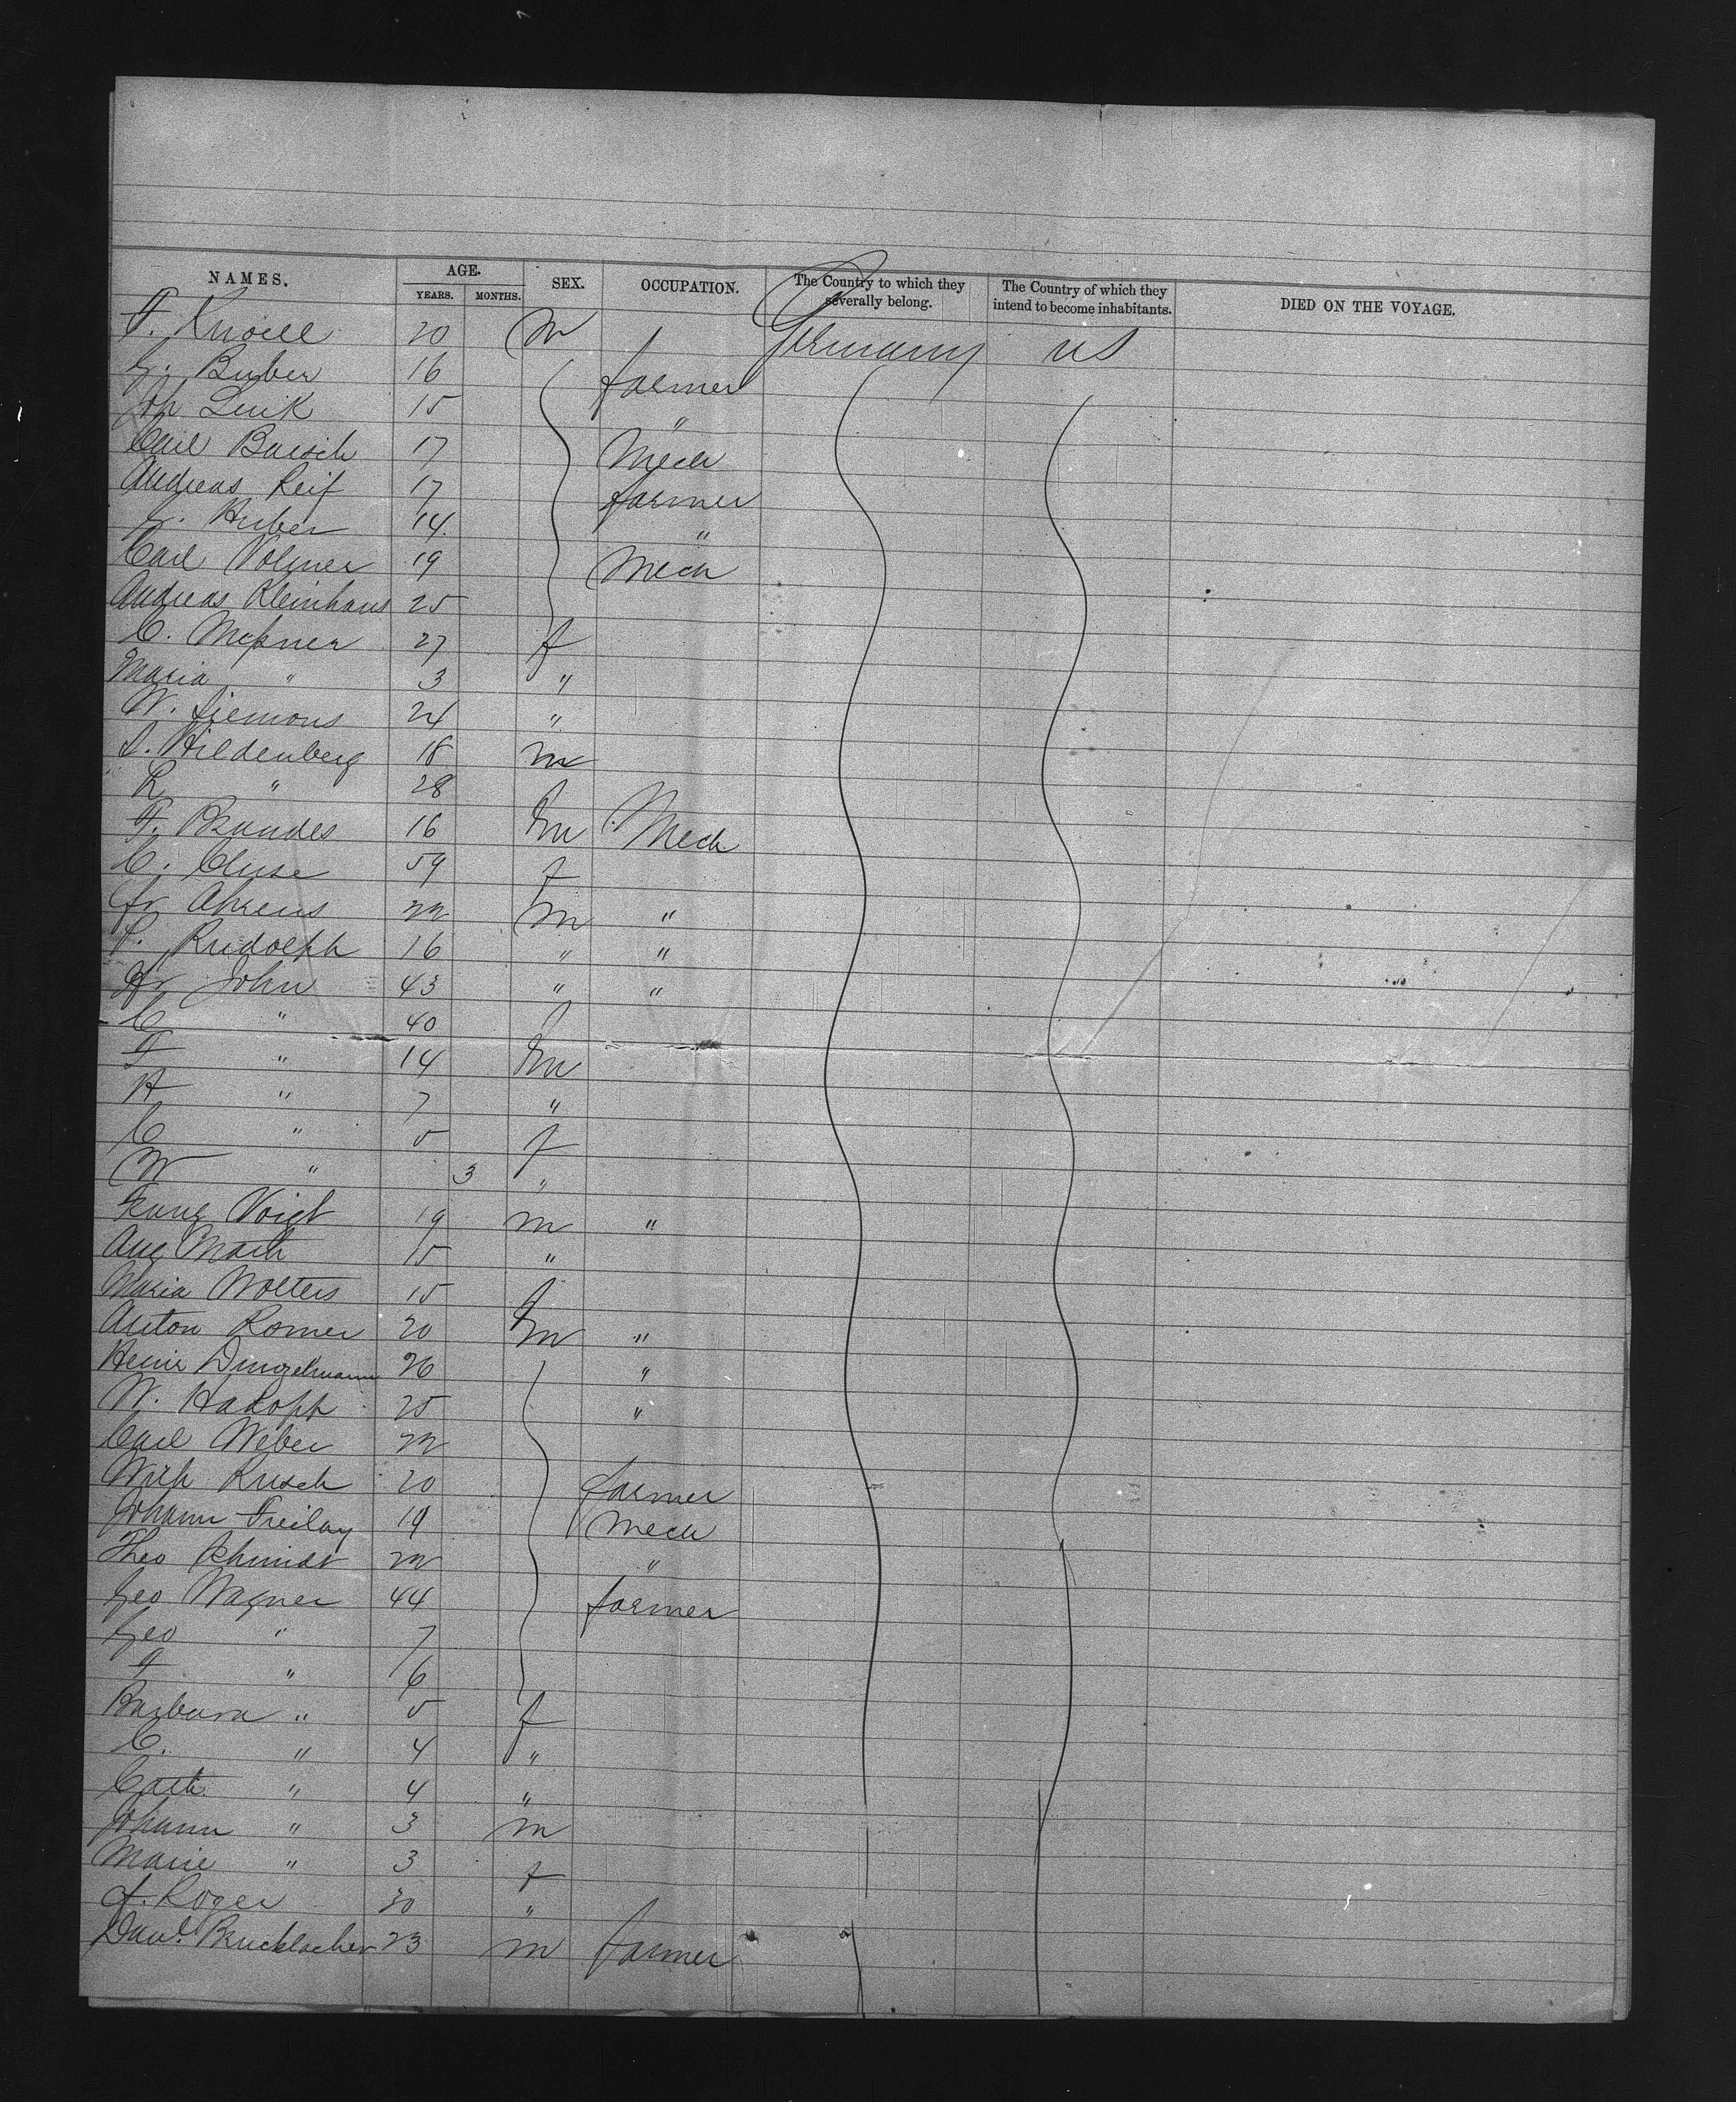 NAMES. AGE. SEX. OCCUPATION. The Country to which they severally belong. The Country of which they intend to become inhabitants. DIED ON THE VOYAGE.
YEARS. MONTHS.
F. Knoell 20 m Germany US
G. Buber 16 farmer
Joh Link 15 "
Carl Baisch 17 Mech
Andreas Reif 17 farmer
G. Huber 14 "
Carl Volmer 19 Mech
Andreas Kleinhaus 25
C. Meßner 27 f
Maria " 3 "
W. Siemons 24 "
S. Hildenberg 18 m
R " 28 f
F. Brandes 16 m Mech
C. Cluse 59 f
Fr Ahrens 22 m "
P. Rudolph 16 " "
Fr John 43 " "
C " 40 f
F " 14 m
H " 7 "
C " 5 f
W " 3 "
Franz Voigt 19 m "
Aug Mach 15 "
Maria Wolters 15 f
Anton Romer 20 m "
Heinr Dingelmann 26 "
W. Hakopp 25 "
Carl Weber 22
Wilh Rusch 20 farmer
Johann Freilay 19 Mech
Theo Schmidt 22 "
Geo Wagner 44 farmer
Geo " 7
F " 6
Barbara " 5 f
C. " 4 "
Cath " 4 "
Johann " 3 m
Marie " 3 f
A. Roger 30 "
Danl. Brucklacher 23 m farmer